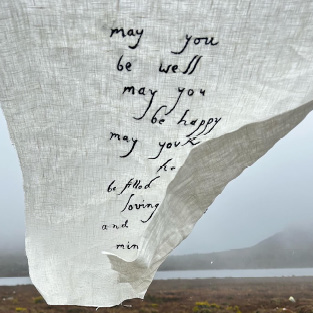 may you
be well
may you
be happy
may you
be filled
loving
and